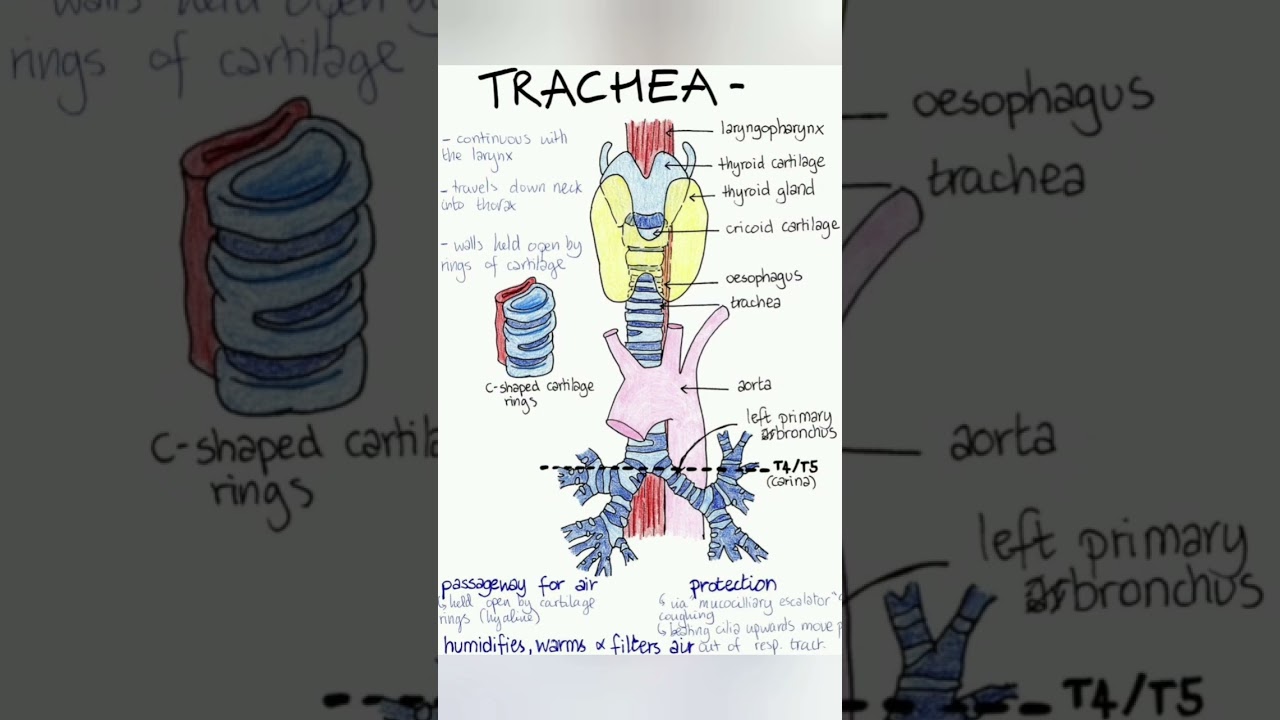 TRACHEA -
- continuous with
the larynx
- travels down neck
into thorax
- walls held open by
rings of cartilage
C-shaped cartilage
rings
laryngopharynx
thyroid cartilage
thyroid gland
cricoid cartilage
oesophagus
trachea
aorta
left primary
bronchus
T4/T5
(carina)
passageway for air
↳ held open by cartilage
rings (hyaline)
protection
↳ via "mucocilliary escalator"
coughing
↳ beating cilia upwards move
out of resp. tract.
humidifies, warms & filters air
walls held open by
rings of cartilage
C-shaped cartila
rings
oesophagus
trachea
aorta
left primary
bronchus
T4/T5